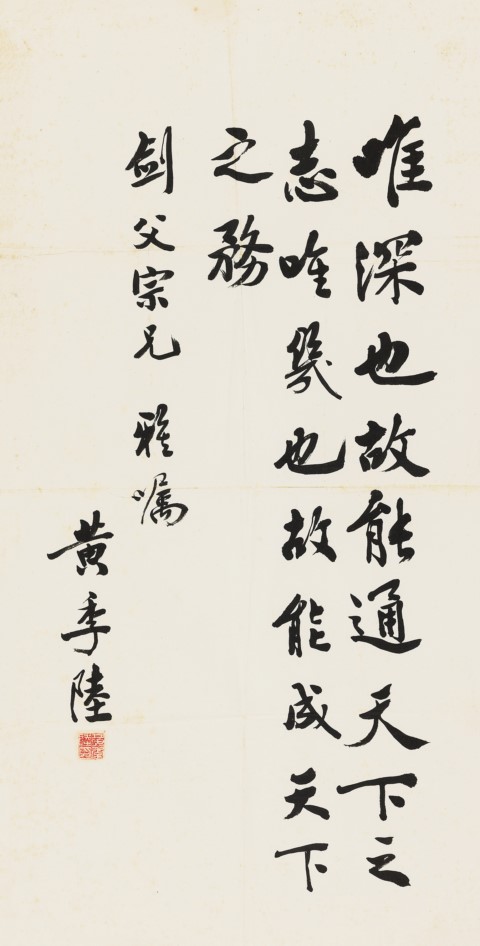 唯深也故能通天下之
志唯幾也故能成天下
之務
剑父宗兄 雅嘱
黄季陸